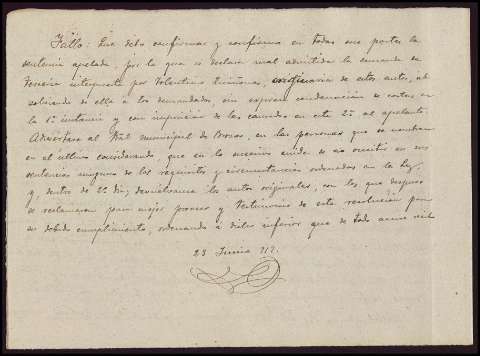 Fallo: Que debo confirmar y confirmo en todas sus partes la
sentencia apelada, por la que se declara mal admitida la demanda de
tercería interpuesta por Valentina originaria de estos autos, ab
solviendo de ella a los demandados, sin expresa condenación de costas en
la 1ª instancia y con imposición de las causadas en esta 2ª al apelante.
Adviértase al Tbal municipal de en las personas que se nombran
en el último considerando, que en lo sucesivo cuide de no omitir en sus
sentencias ninguno de los requisitos y circunstancias ordenados en la Ley
y, dentro de 2º día, devuélvanse los autos originales, con los que después
se reclamaron para mejor proveer y testimonio de esta resolución para
su debido cumplimiento, ordenando a dicho inferior que de todo acuse
23 Junio 912.